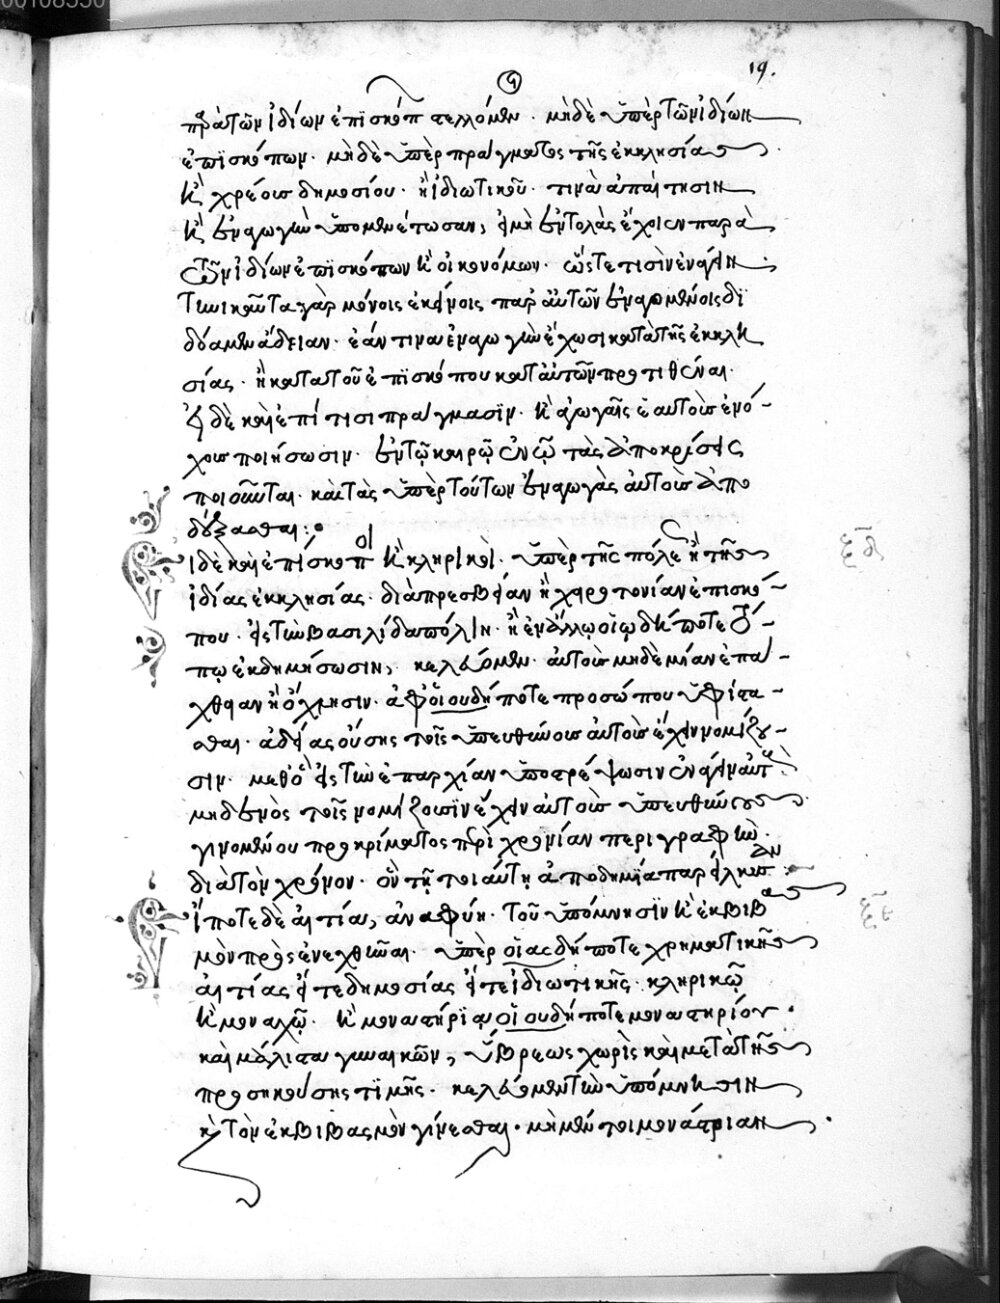 00108550
19.
παρὰ τῶν ἰδίων ἐπισκόπ στελλόμεν. μηδὲ ὑπὲρ τῶν ἰδίων
ἐπισκόπων. μηδὲ ὑπὲρ πράγματος τῆς ἐκκλησίας.
κ χρέους δημοσίου. ἢ ἰδιωτικοῦ. τινὰ ἀπαίτησιν
κ ἐναγωγὴν ὑπομενέτωσαν, εἰ μὴ ἐντολὰς ἔχοιεν παρὰ
τῶν ἰδίων ἐπισκόπων κ οἰκονόμων. ὥστε τισὶν ἐνάγειν.
κατὰ ταῦτα γὰρ μόνοις ἐκείνοις παρ αὐτῶν ἐναγομένοις δι
δόαμεν ἄδειαν. ἐάν τινα ἐναγωγὴν ἔχωσι κατὰ τῆς ἐκκλη
σίας. ἢ κατὰ τοῦ ἐπισκόπου κατ αὐτῶν προτιθέναι.
εἰ δὲ καὶ ἐπί τισι πράγμασιν. κ ἀγωγαῖς ἑαυτοὺς ἐνό-
χους ποιήσωσιν. ἐν τῷ καιρῷ ἐν ᾧ τὰς ἀποκρίσεις
ποιοῦνται. καὶ τὰς ὑπὲρ τούτων ἐναγωγὰς αὐτοὺς ἀπο
δέξασθαι:
ἱ δὲ καὶ ἐπίσκοποι κ κληρικοὶ. ὑπὲρ τῆς πόλε ἢ τῆς
ἰδίας ἐκκλησίας. διὰ πρεσβείαν ἢ χειροτονίαν ἐπισκό-
που. εἰς τὴν βασιλίδα πόλιν. ἢ ἐν ἄλλῳ οἱῳδήποτε τό-
πῳ ἐκδημήσωσιν, κελεύομεν. αὐτοὺς μηδεμίαν ἐπα-
χθειαν ἢ ὄχλησιν. ἀφ οἱουδήποτε προσώπου ὑφίστα-
σθαι. ἀδείας οὔσης τοῖς ὑπευθύνους αὐτοὺς ἔχειν νομίζου-
σιν. μεθ ὃ εἰς τὴν ἐπαρχίαν ὑποστρέψωσιν ἐνάγειν αὐτ
μηδενὸς τοῖς νομίζουσιν ἔχειν αὐτοὺς ὑπευθύνους.
γινομένου προκρίματος περὶ χρονίαν περιγραφὴν.
διὰ τὸν χρόνον. ὃν τῇ τοιαύτῃ ἀποδημίᾳ παρείλκυσαν.
ἵ ποτε δὲ αἰτία, ἀναφύη. τοῦ ὑπόμνησιν κ ἐκβιβασ
μὸν προσενεχθῆναι. ὑπὲρ οἱασδήποτε χρηματικῆς
αἰτίας εἴτε δημοσίας εἴτε ἰδιωτικῆς. κληρικῷ
κ μοναχῷ. κ μοναστηρίῳ οἱουδήποτε μοναστηρίου.
καὶ μάλιστα γυναικῶν, ὕβρεως χωρὶς καὶ μετὰ τῆς
προσηκούσης τιμῆς. κελεύομεν τὴν ὑπόμνησιν
κ τὸν ἐκβιβασμὸν γίνεσθαι. μὴ μέντοι μονάστριαν.